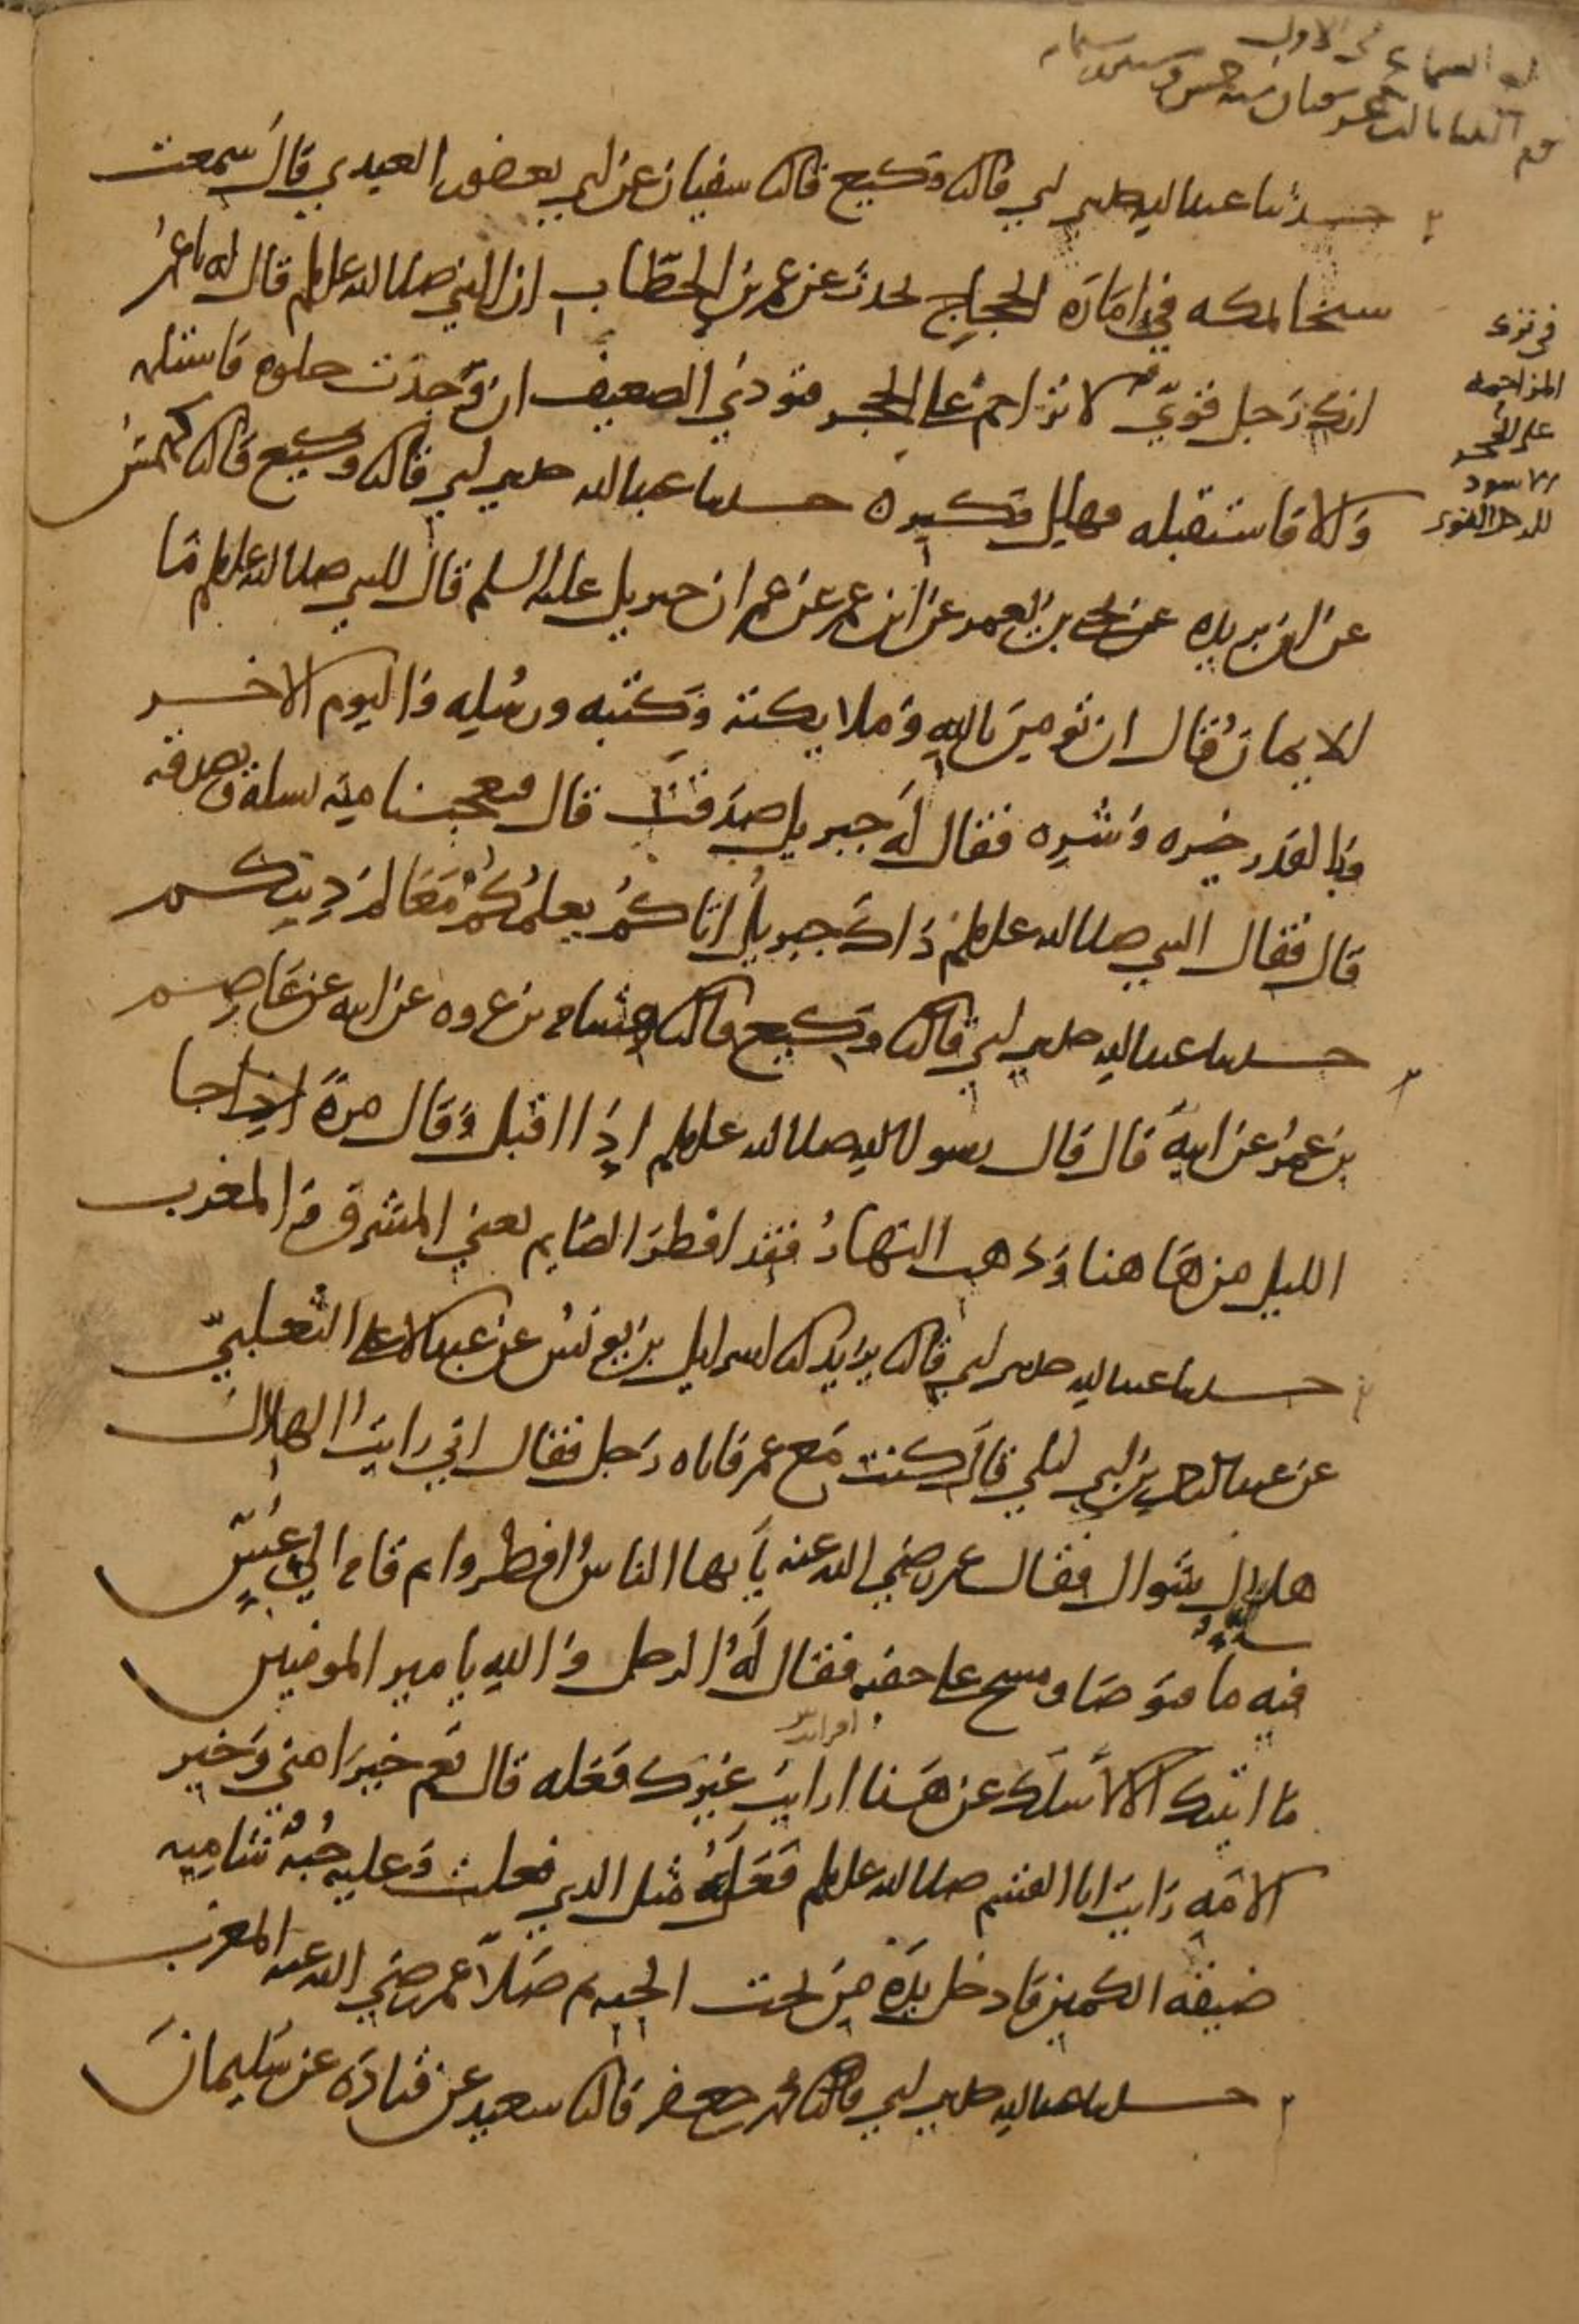 حدثنا عبد الله حدثني ابي قال ثنا وكيع قال ثنا سفيان عن ابي يعفور العبدي قال سمعت
شيخا بمكه في امارة الحجاج يحدث عن عمر بن الخطاب ان النبي صلى الله عليه وسلم قال له يا عمر
انك رجل قوي لا تزاحم على الحجر فتوذي الضعيف ان وجدت خلوه فاستلمه
والا فاستقبله فهلل وكبر ه حدثنا عبد الله حدثني ابي قال ثنا وكيع قال ثنا كهمس
عن ابن بريده عن يحيى بن يعمر عن ابن عمر عن عمر ان جبريل عليه السلم قال للنبي صلى الله عليه وسلم ما
الايمان قال ان تومن بالله وملايكته وكتبه ورسله واليوم الاخر
وبالقدر خيره وشره فقال له جبريل صدقت قال فتعجبنا منه يسله ويصدقه
قال فقال النبي صلى الله عليه وسلم ذاك جبريل اتاكم يعلمكم معالم دينكم
حدثنا عبد الله حدثني ابي قال ثنا وكيع قال ثنا هشام بن عروه عن ابيه عن عاصم
بن عمر عن ابيه قال قال رسول الله صلى الله عليه وسلم اذا اقبل وقال مرة اذا جا
الليل من هاهنا وذهب النهار فقد افطر الصايم يعني المشرق والمغرب
حدثنا عبد الله حدثني ابي قال ثنا يزيد انا اسرايل بن يونس عن عبد الاعلى الثعلبي
عن عبد الرحمن بن ابي ليلى قال كنت مع عمر فاتاه رجل فقال اني رايت الهلال
هلال شوال فقال عمر رضي الله عنه يا يها الناس افطروا ثم قام الى عس
فيه ما فتوضا ومسح على خفيه فقال له الرجل والله يا مير المومنين
ما اتيتك الا لاسلك عن هذا ارايت غيرك فعله قال نعم خيرا مني وخير
افرايت
الامه رايت ابا القسم صلى الله عليه وسلم فعل مثل الذي فعلت وعليه جبة شاميه
ضيقه الكمين فادخل يده من تحت الجبه ثم صلا عمر رضي الله عنه المغرب
حدثنا عبد الله حدثني ابي قال ثنا محمد بن جعفر قال ثنا سعيد عن قتادة عن سليمان
في ترك
المزاحمه
على الحجر
الاسود
للرجل القوي